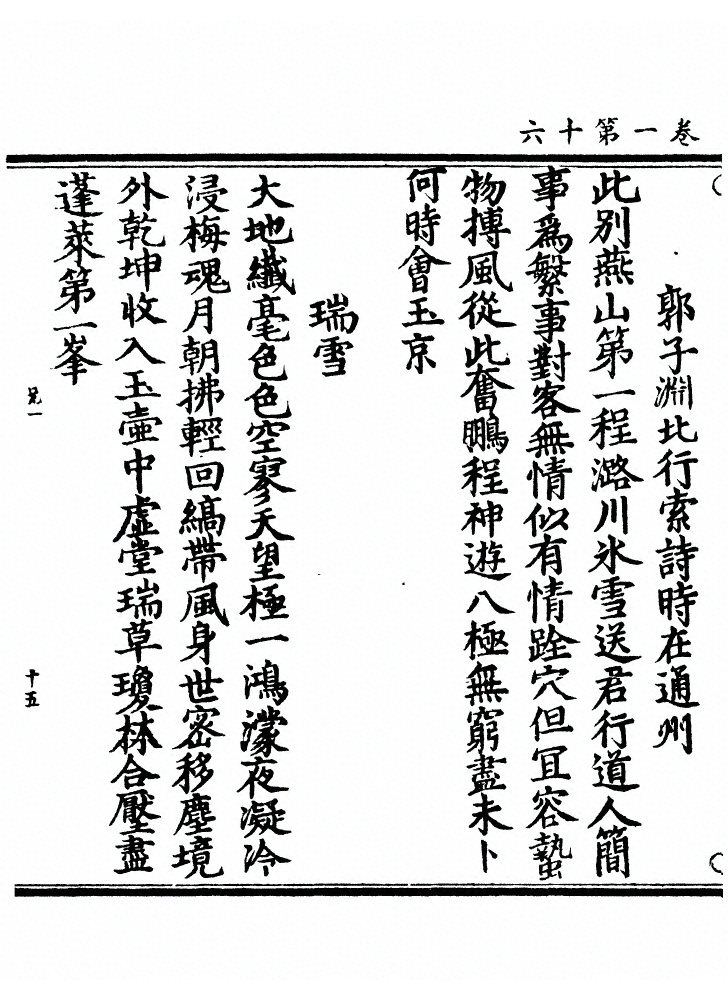 卷一第十六
郭子淵北行索詩時在通州
此別燕山第一程潞川氷雪送君行道人簡
事爲繁事對客無情似有情跧穴但冝容蟄
物摶風從此奮鵬程神遊八極無窮盡未卜
何時會玉京
瑞雪
大地纖毫色色空寥天望極一鴻濛夜凝泠
浸梅魂月朝拂輕回縞帶風身世密移塵境
外乾坤收入玉壷中虛堂瑞草瓊林合壓盡
蓬萊第一峯
兄一
十五